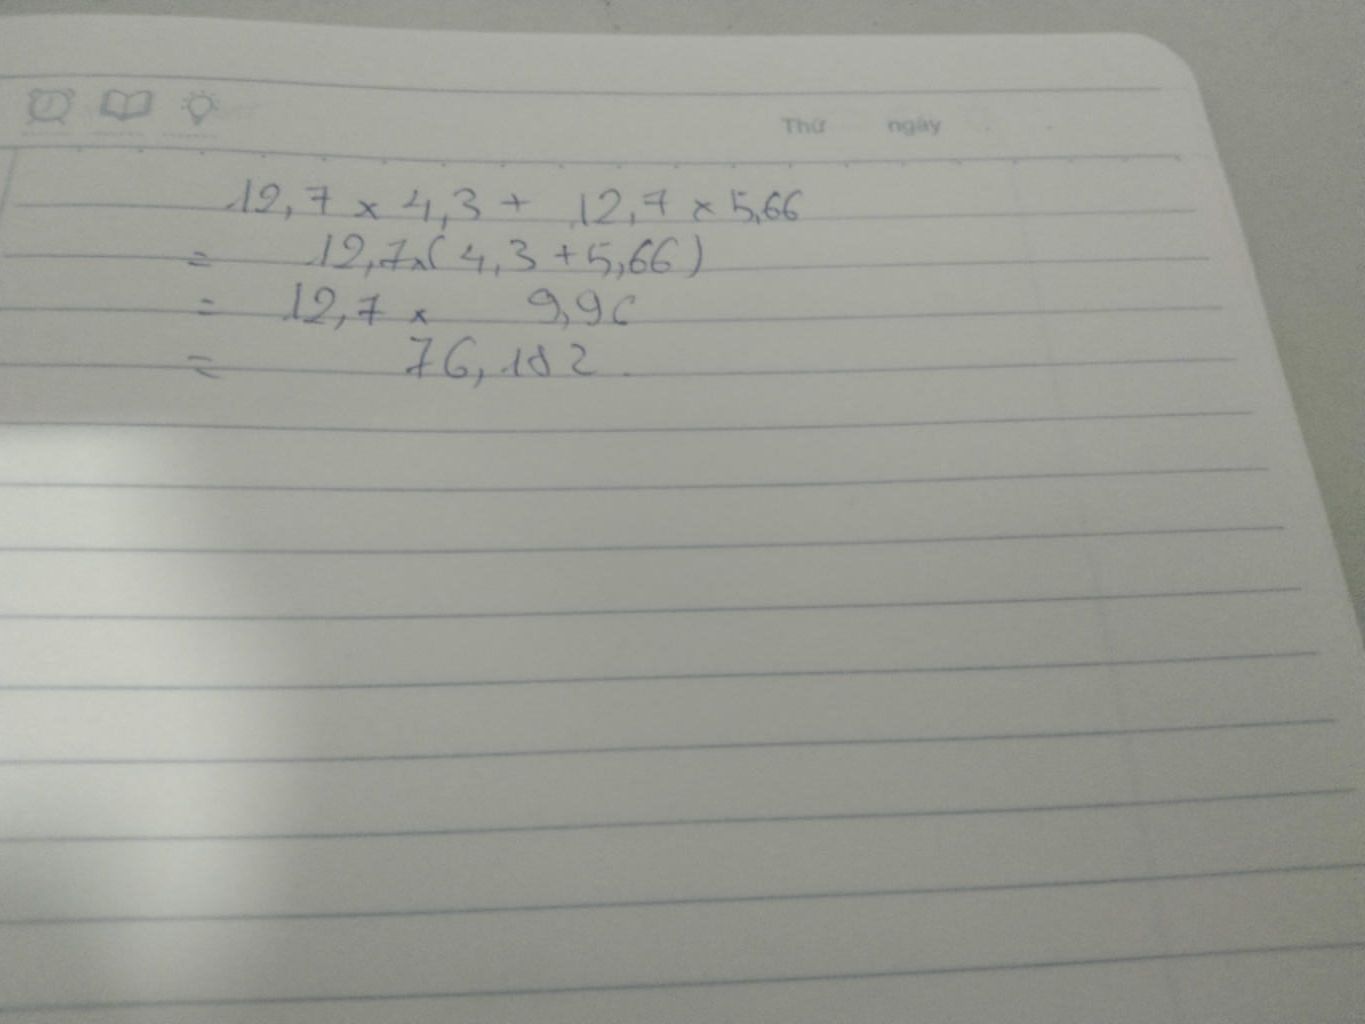 Thứ ngày
12,7 x 4,3 + 12,7 x 5,66
= 12,7x(4,3+5,66)
= 12,7 x 9,96
= 76,182.